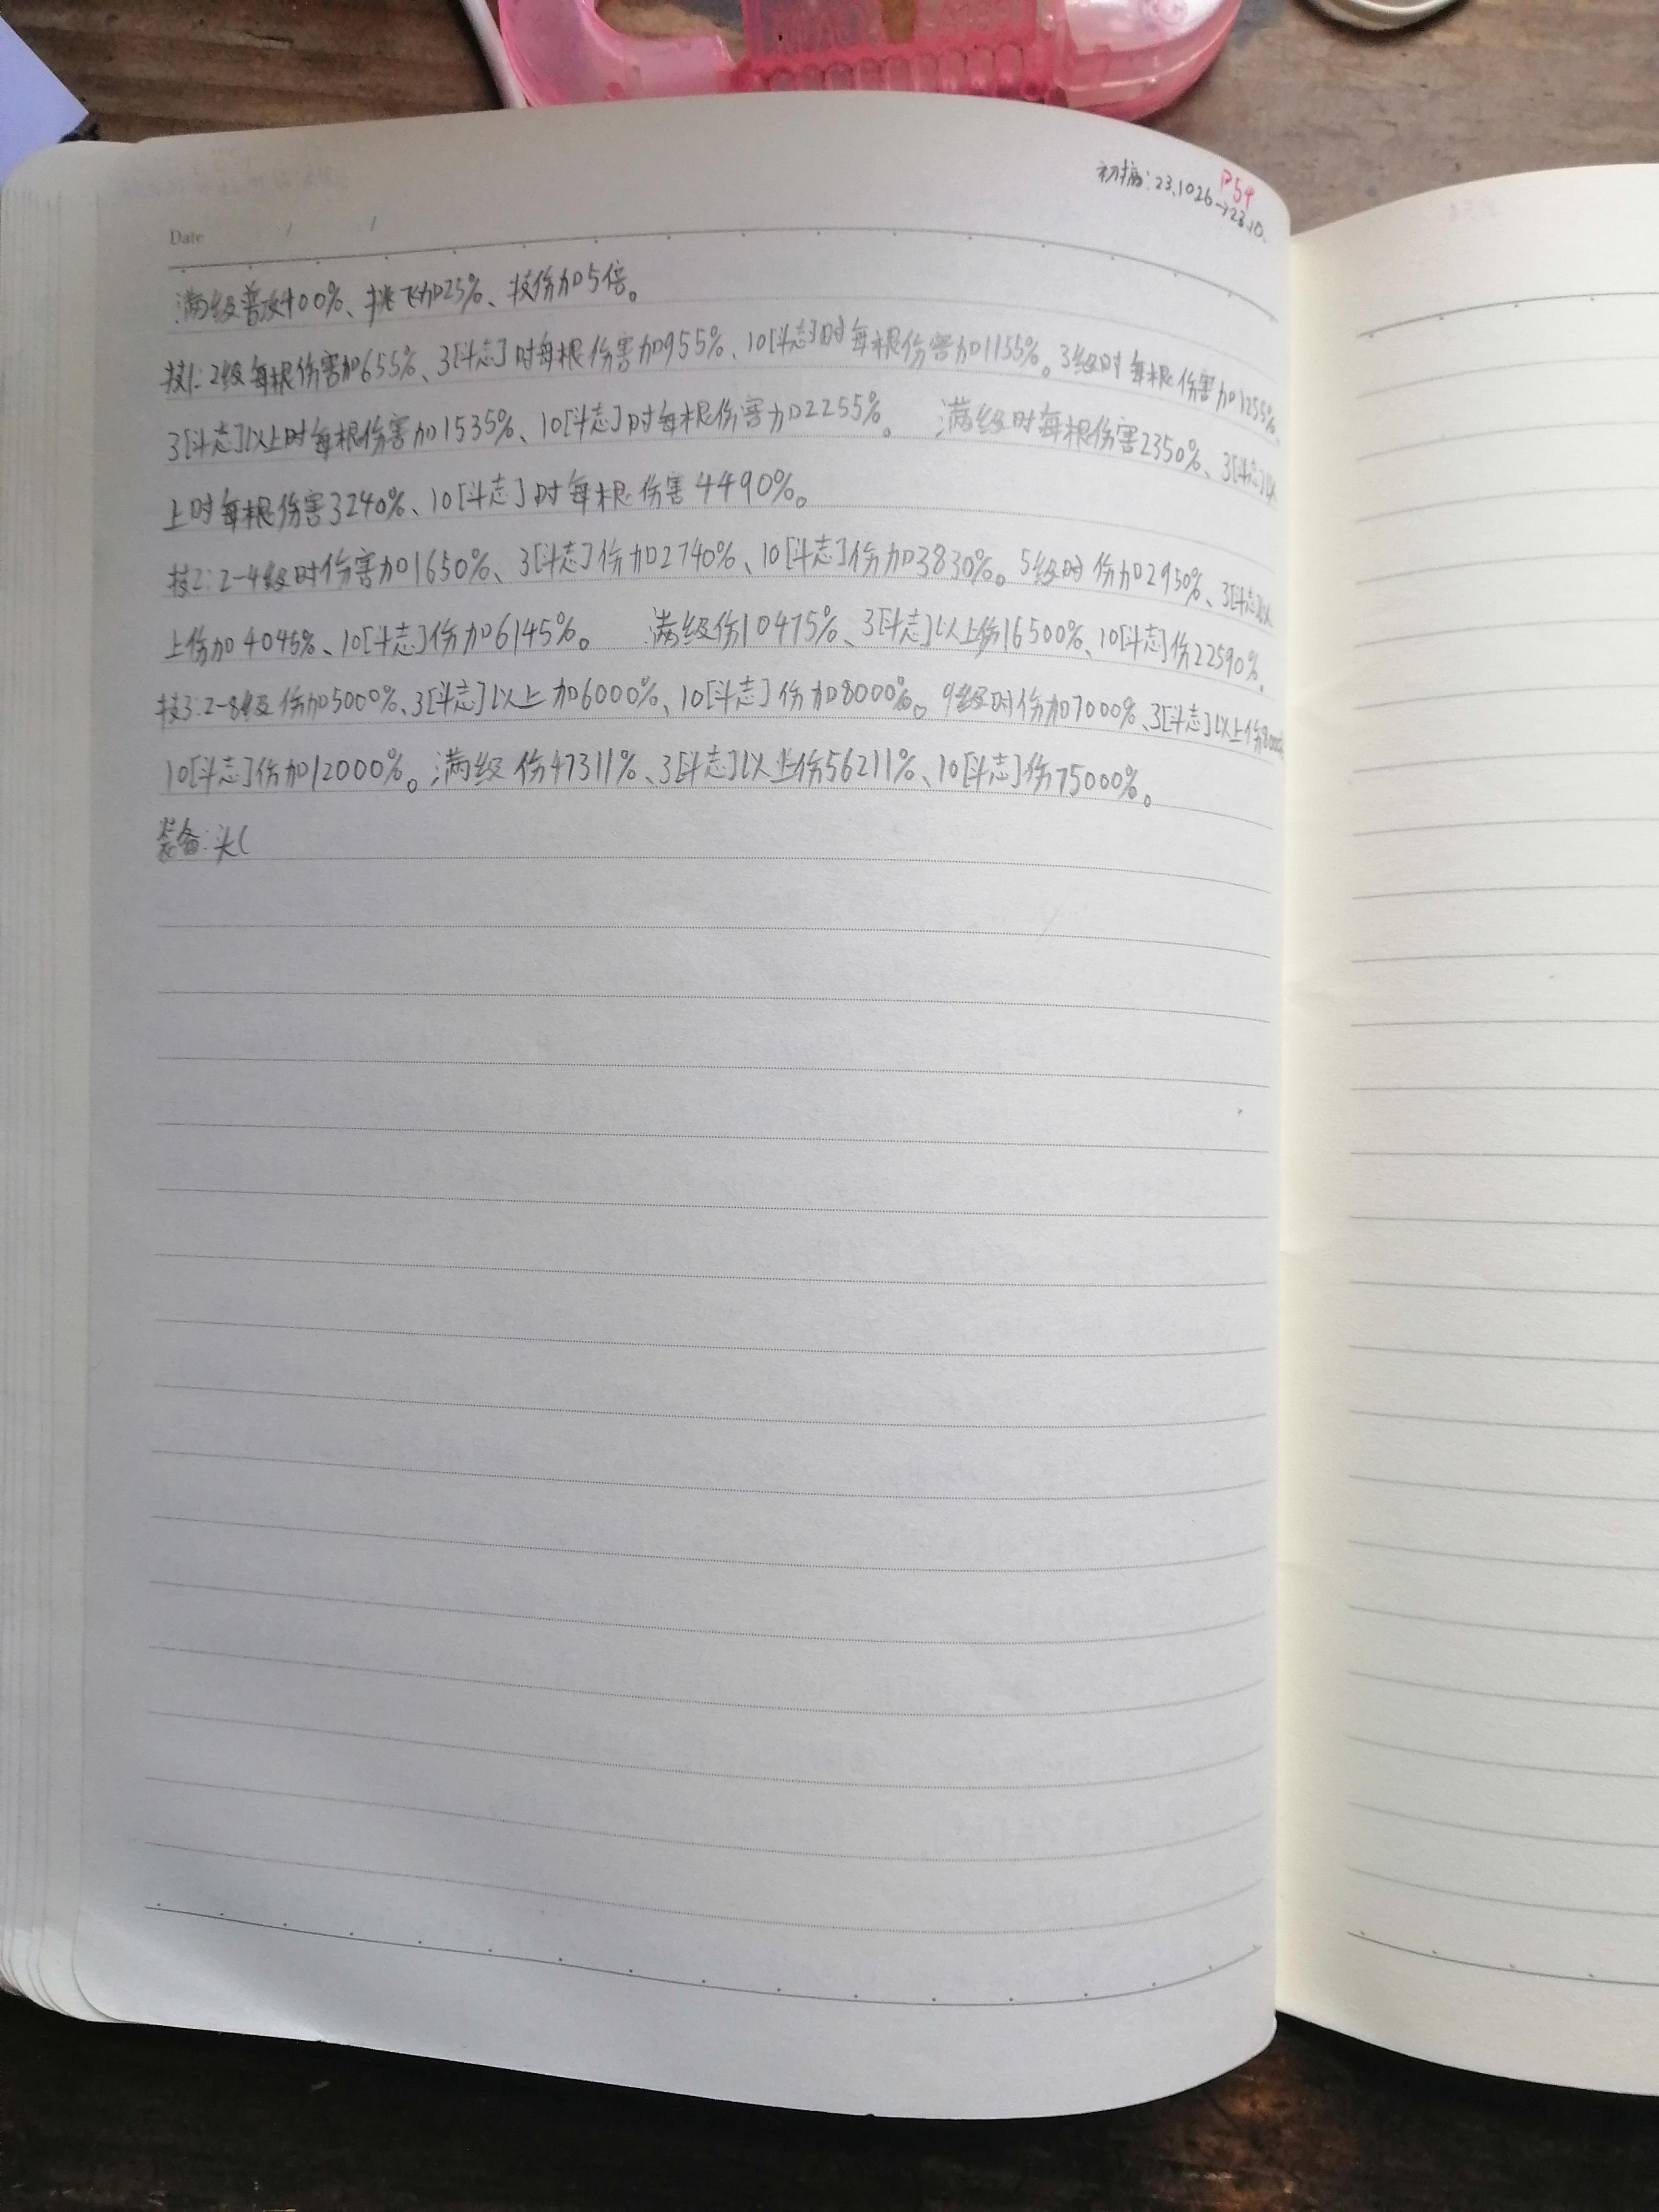 P54
初摘:23.1026→23.10.
Date / /
满级普攻400%、挑飞加25%、技伤加5倍。
技1:2级每根伤害加655%、3[斗志]时每根伤害加955%、10[斗志]时每根伤害加1155%。3级时每根伤害加1255%、
3[斗志]以上时每根伤害加1535%、10[斗志]时每根伤害加2255%。 满级时每根伤害2350%、3[斗志]以
上时每根伤害3240%、10[斗志]时每根伤害4490%。
技2:2-4级时伤害加1650%、3[斗志]伤加2740%、10[斗志]伤加3830%。5级时伤加2950%、3[斗志]以
上伤加4045%、10[斗志]伤加6145%。 满级伤10475%、3[斗志]以上伤16500%、10[斗志]伤22590%。
技3:2-8级伤加5000%、3[斗志]以上加6000%、10[斗志]伤加8000%。9级时伤加7000%、3[斗志]以上伤
10[斗志]伤加12000%。满级伤47311%、3[斗志]以上伤56211%、10[斗志]伤75000%。
装备:头(